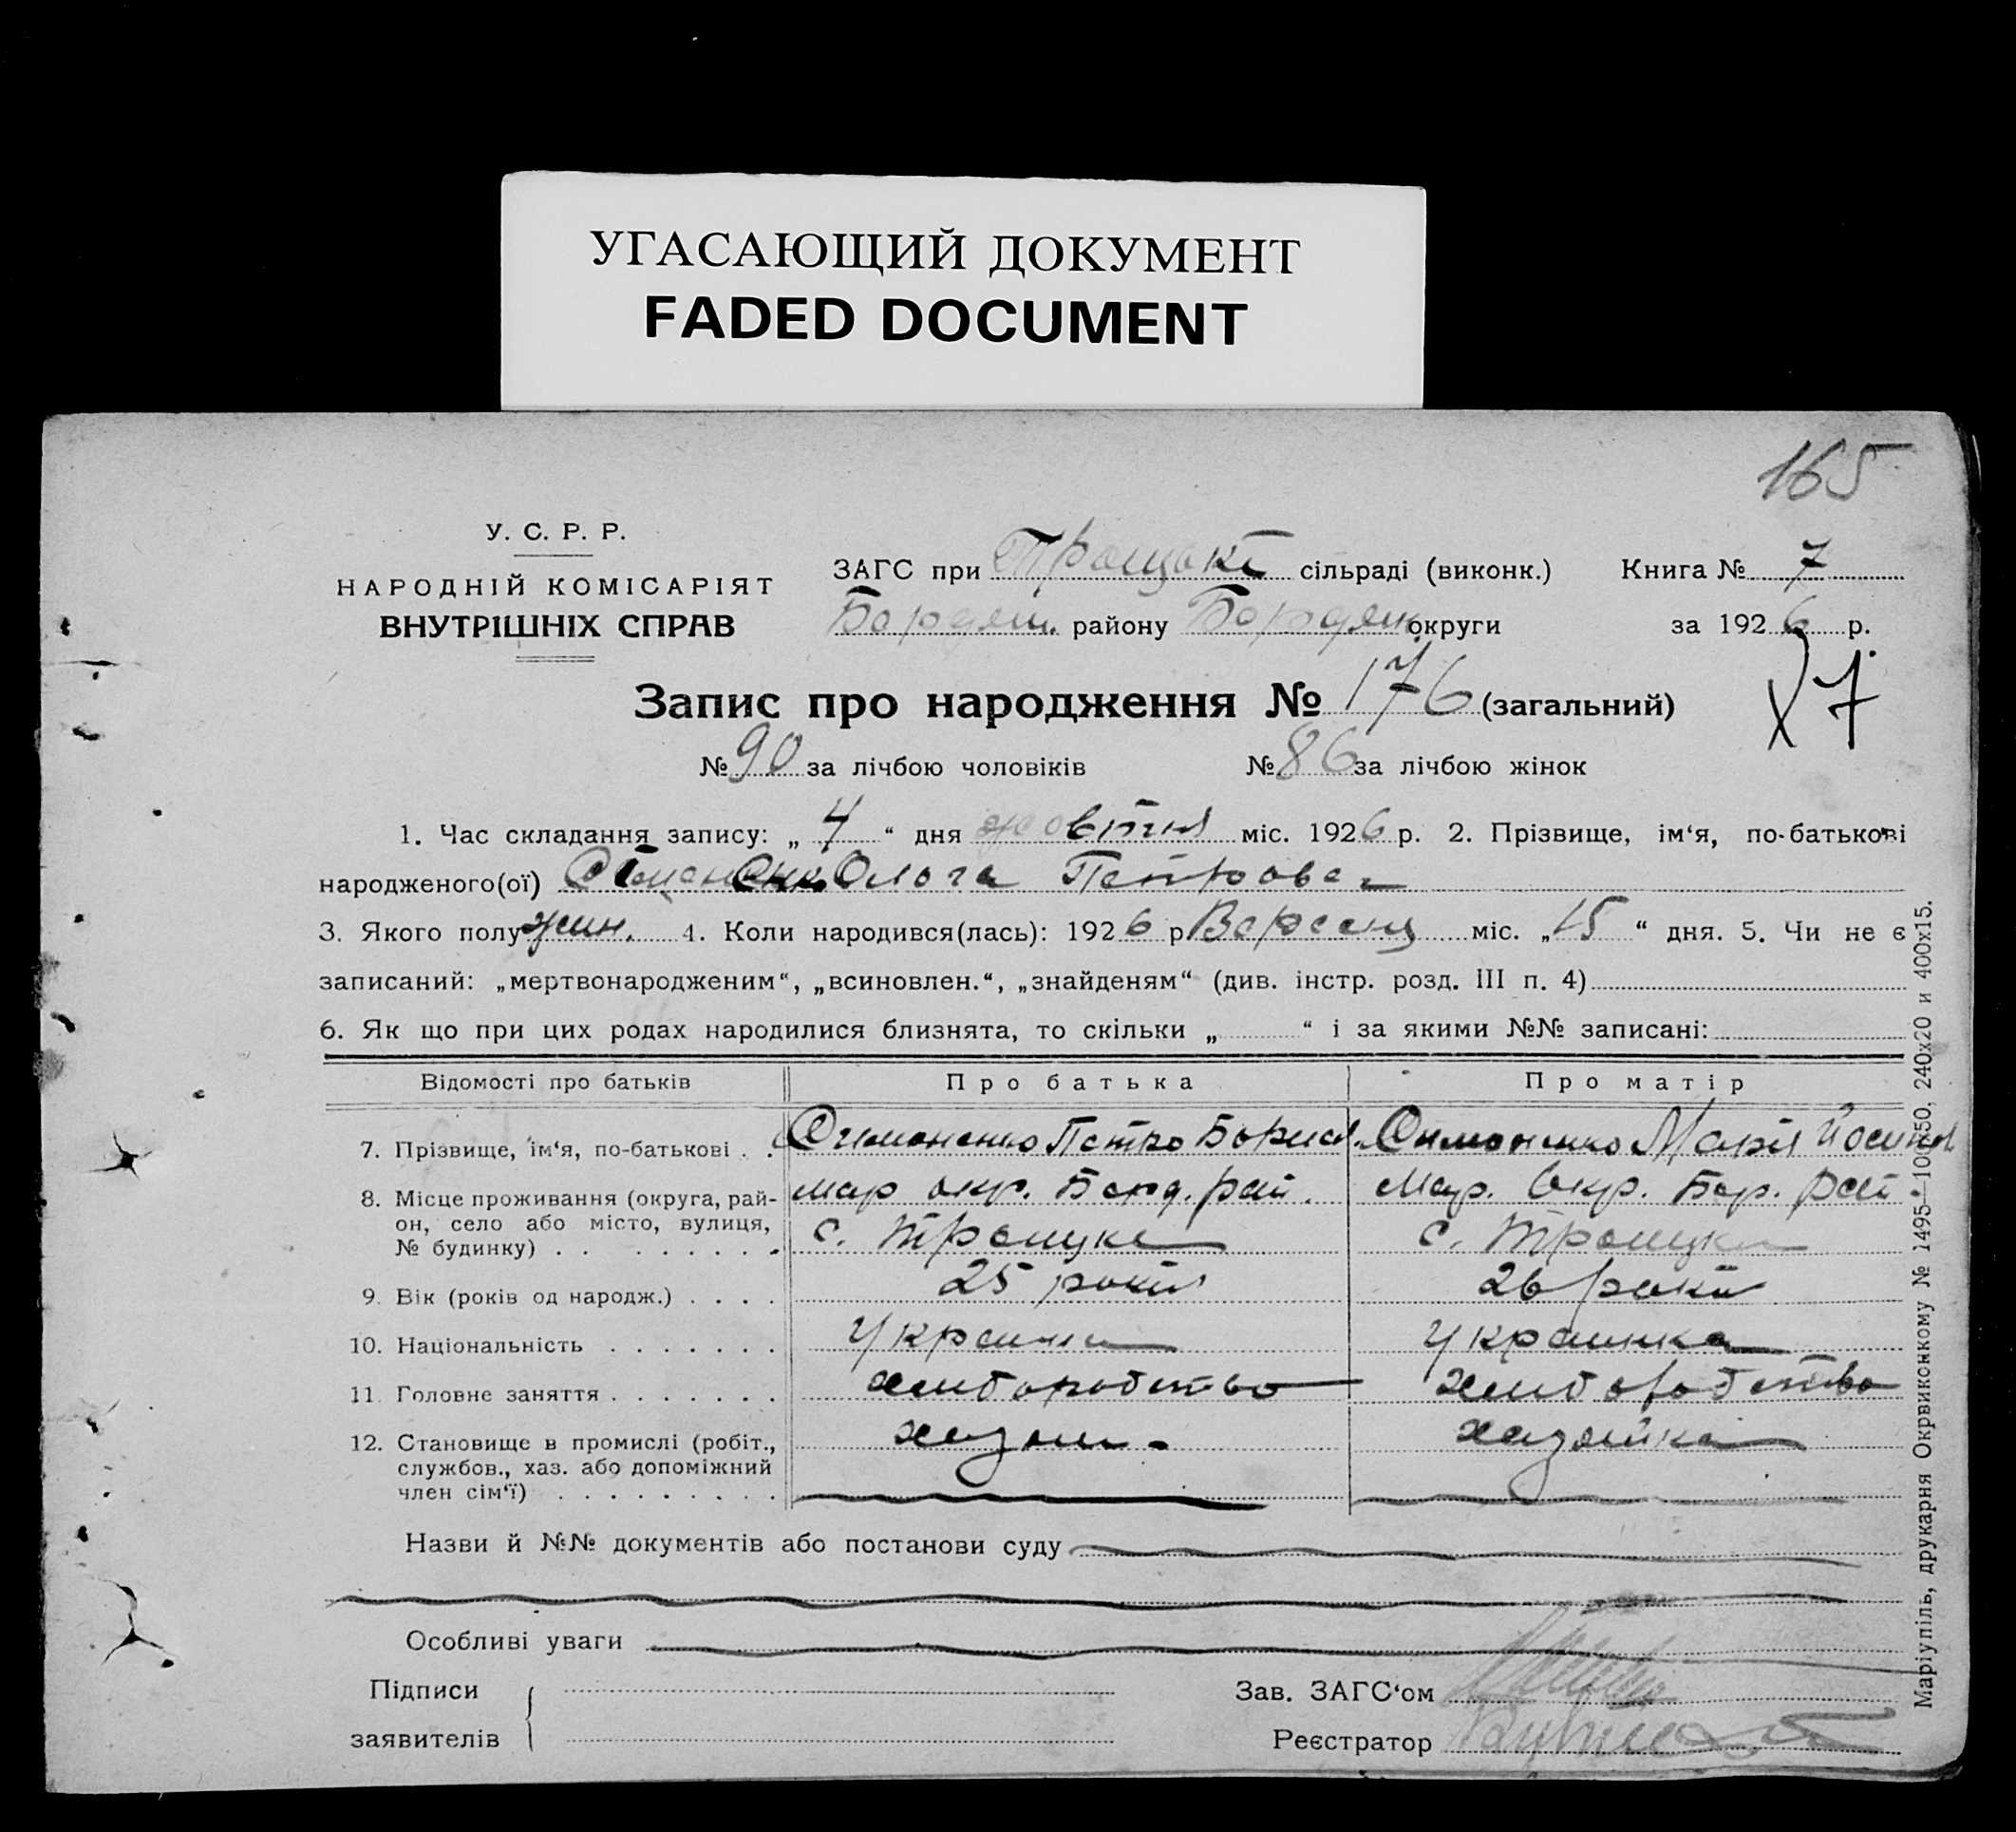 УГАСАЮЩИЙ ДОКУМЕНТ
FADED DOCUMENT
165
У. С. Р. Р.
НАРОДНІЙ КОМІСАРІЯТ
ВНУТРІШНІХ СПРАВ
ЗАГС при сільраді (виконк.) Книга № 7
району округи за 1926 р.
Х 7
Запис про народження № 176 (загальний)
№ 90 за лічбою чоловіків № 86 за лічбою жінок
1. Час складання запису: „ 4 “ дня жовтня міс. 1926 р. 2. Прізвище, ім‘я, по-батькові
народженого(ої) Ольга Петровна
3. Якого полу жин. 4. Коли народився(лась): 1926 р. Вересень міс. „15 “ дня. 5. Чи не є
записаний: „мертвонародженим“, „всиновлен.“, „знайденям“ (див. інстр. розд. III п. 4)
6. Як що при цих родах народилися близнята, то скільки „ “ і за якими №№ записані:
Відомості про батьків Про батька Про матір
7. Прізвище, ім‘я, по-батькові . . Симоненко Петро Борисов. Симоненко Марія Йосипов
8. Місце проживання (округа, рай- Мар окр. Берд. рай. Мар. Окр. Бер. рай
он, село або місто, вулиця, с. Троицке с. Троицке
№ будинку) . . . . . . . . .
9. Вік (років од народж.) . . . . 25 років 26 років
10. Національність . . . . . . . Українец Українка
11. Головне заняття . . . . . . . хлиборобство хлиборобство
12. Становище в промислі (робіт., хазяин хазяйка
службов., хаз. або допоміжний
член сім‘ї) . . . . . . . . .
Назви й №№ документів або постанови суду
Особливі уваги
Підписи Зав. ЗАГС‘ом
заявителів Реєстратор
Маріупіль, друкарня Окрвиконкому № 1495—100х50, 240х20 и 400х15.